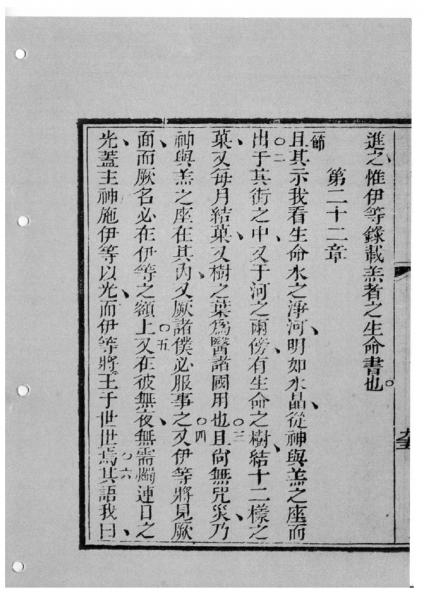 進之惟伊等錄載羔者之生命書也
第二十二章
一節
且其示我看生命水之淨河明如水晶從神與羔之座而
出于其街之中又于河之兩傍有生命之樹結十二樣之
菓又每月結菓又樹之葉爲醫諸國用也三且尚無咒災乃
神與羔之座在其內又厥諸僕必服事之四又伊等將見厥
面而厥名必在伊等之額上五又在彼無夜無需燭連日之
光蓋主神施伊等以光而伊等將王于世世焉六其語我曰